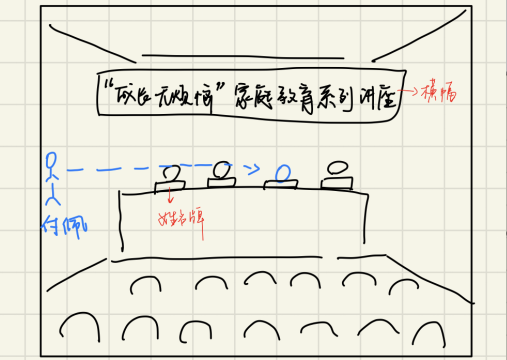 “成长无烦恼”家庭教育系列讲座
横幅
姓名牌
付佩